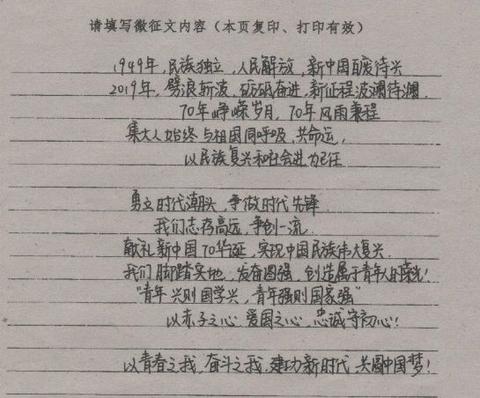 请填写微征文内容（本页复印、打印有效）
1949年，民族独立，人民解放，新中国百废待兴
2019年，劈浪斩波，砥砺奋进，新征程波澜待澜
70年峥嵘岁月，70年风雨兼程
集大人始终与祖国同呼吸，共命运，
以民族复兴和社会进步为己任
勇立时代潮头，争做时代先锋
我们志存高远，争创一流
献礼新中国70华诞，实现中国民族伟大复兴
我们脚踏实地，发奋图强，创造属于青年人的荣光！
“青年兴则国学兴，青年强则国家强”
以赤子之心，爱国之心，忠诚守初心！
以青春之我，奋斗之我，建功新时代，共圆中国梦！